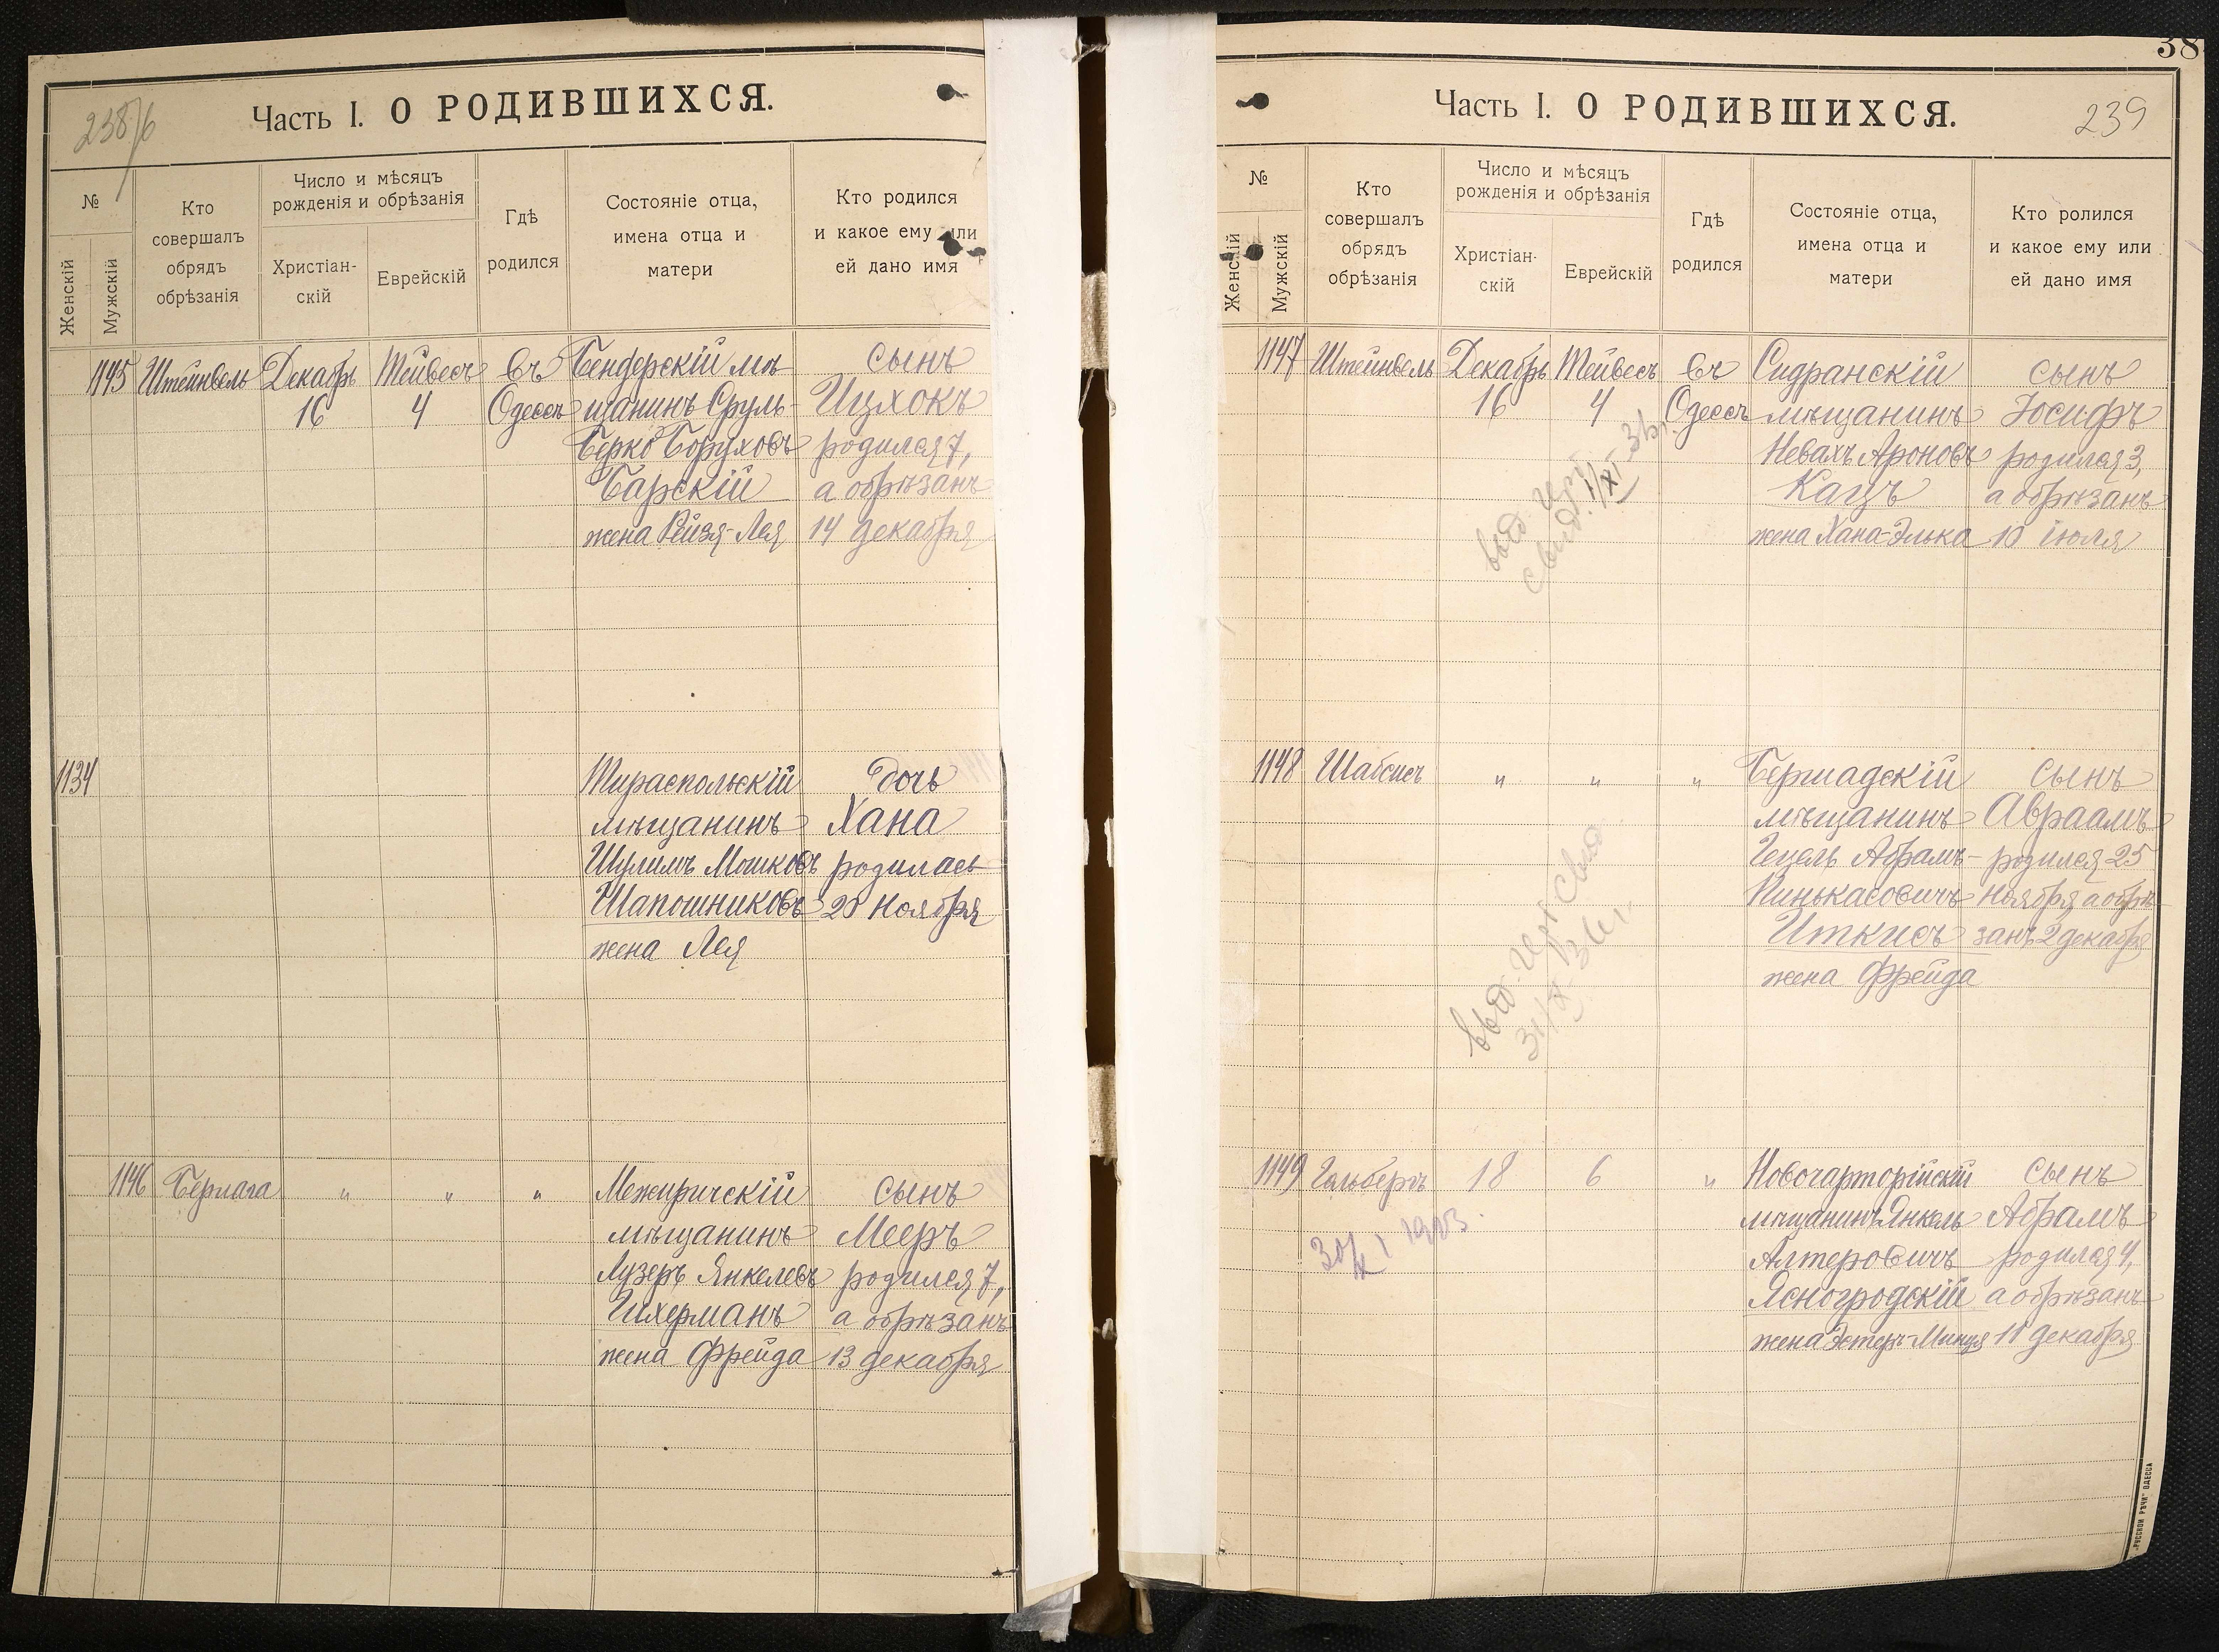 238/6
Часть I. О РОДИВШИХСЯ.
№
Женскій
Мужскій
Кто
совершалъ
обрядъ
обрѣзанія
Число и мѣсяцъ
рожденія и обрѣзанія
Христіан-
скій
Еврейскій
Гдѣ
родился
Состояніе отца,
имена отца и
матери
Кто родился
и какое ему или
ей дано имя
1145 Штейнвель Декабрь Тейвесъ въ Бендерскій мѣ- сынъ
16 4 Одессѣ щанинъ Сруль- Ицхокъ
Берко Боруховъ родился 7,
Барскій а обрѣзанъ
жена Рейзя-Лея 14 декабря
1134 Тираспольскій дочь
мѣщанинъ Хана
Шулимъ Мошковъ родилась
Шапошниковъ 20 ноября
жена Лея
1146 Берлага " " " Межиричскій сынъ
мѣщанинъ Мееръ
Лузеръ Янкелевъ родился 7,
Ихерманъ а обрѣзанъ
жена Фрейда 13 декабря
38
Часть I. О РОДИВШИХСЯ.
239
№
Женскій
Мужскій
Кто
совершалъ
обрядъ
обрѣзанія
Число и мѣсяцъ
рожденія и обрѣзанія
Христіан-
скій
Еврейскій
Гдѣ
родился
Состояніе отца,
имена отца и
матери
Кто ролился
и какое ему или
ей дано имя
1147 Штейнвель Декабрь Тейвесъ въ Сидранскій сынъ
16 4 Одессѣ мѣщанинъ Іосифъ
Невахъ Ароновъ родился 3,
Кацъ а обрѣзанъ
жена Хана-Элька 10 іюля
выд.
свид.
1148 Шабсисъ " " " Бершадскій сынъ
мѣщанинъ Авраамъ
Гецель Абрамъ- родился 25
Пинькасовичъ ноября а обрѣ-
Иткисъ занъ 2 декабря
жена Фрейда
выд.
1149 Гольбергъ 18 6 " Новочарторійскій сынъ
мѣщанинъ Янкель Абрамъ
Алтеровичъ родился 4,
Ясногродскій а обрѣзанъ
жена Эстеръ-Минця 11 декабря
„РУССКОЙ РѢЧИ" ОДЕССА